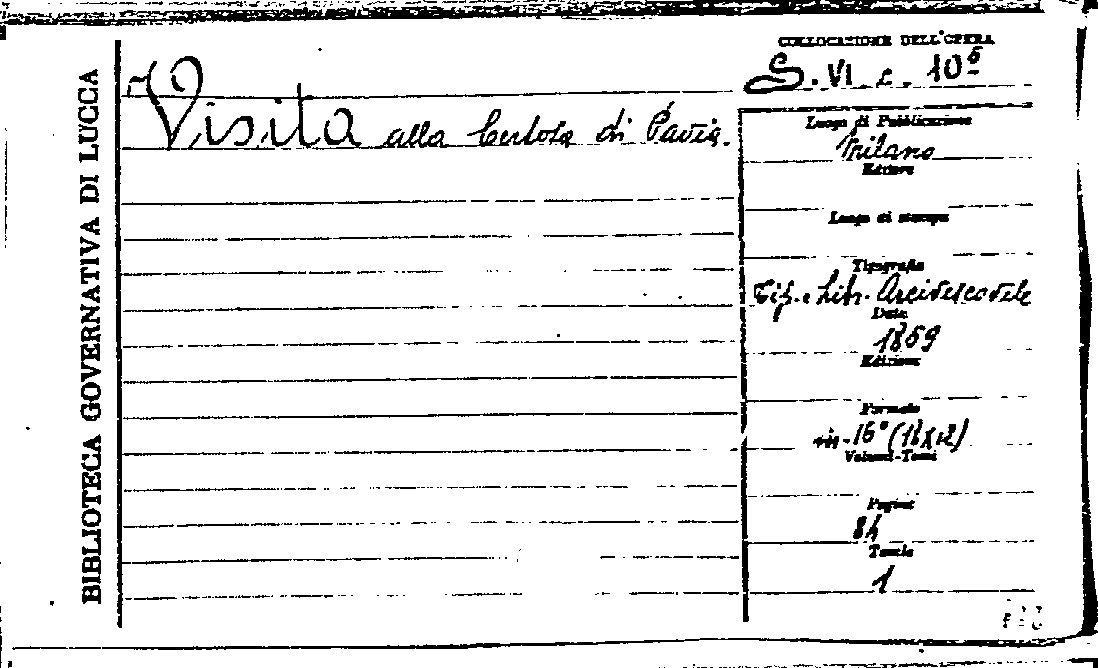 BIBLIOTECA GOVERNATIVA DI LUCCA
Visita alla Certosa di Pavia.
COLLOCAZIONE DELL'OPERA
S. VI. c. 10⁵
Luogo di Pubblicazione
Milano
Editore
Luogo di stampa
Tipografia
Tip. e Libr. Arcivescovile
Data
1869
Edizione
Formato
in-16° (18x12)
Volumi-Tomi
Pagine
84
Tavole
1